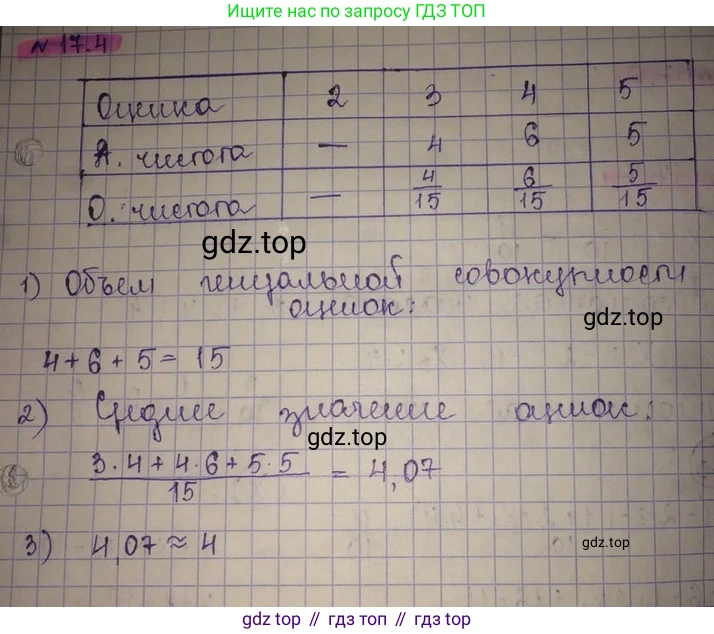 Ищите нас по запросу ГДЗ ТОП
N 17.4
Оценка 2 3 4 5
А. чистота — 4 6 5
О. чистота — 4/15 6/15 5/15
gdz.top
1) Объем генеральной совокупности
оценок:
gdz.top
4+6+5= 15
2) Среднее значение оценок:
gdz.top
3·4+4·6+5·5 / 15 = 4,07
3) 4,07≈4
gdz.top
gdz top // гдз топ // gdz.top